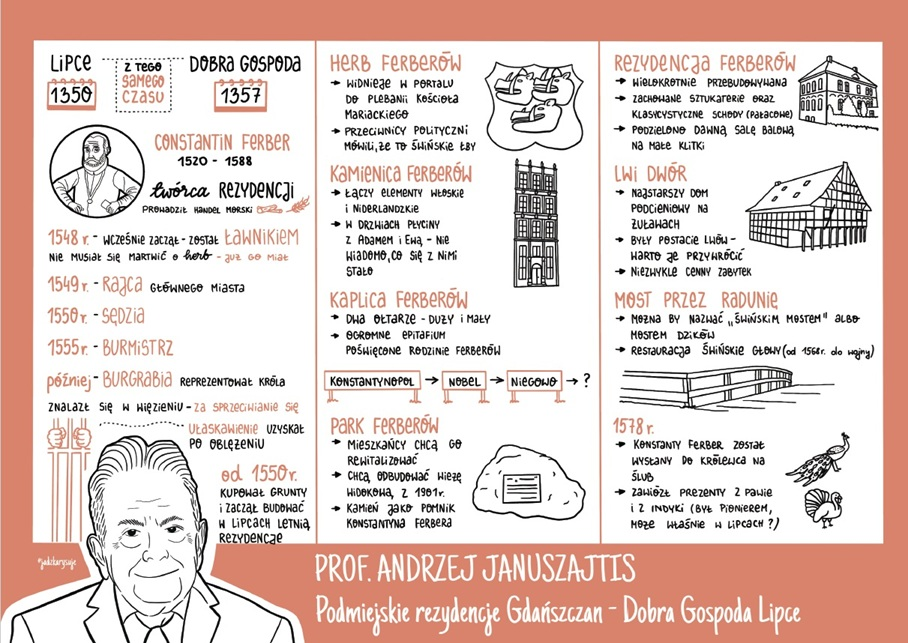 LIPCE
1350
Z TEGO
SAMEGO
CZASU
DOBRA GOSPODA
1357
CONSTANTIN FERBER
1520 - 1588
twórca REZYDENCJI
PROWADZIŁ HANDEL MORSKI
1548 r. - WCZEŚNIE ZACZĄŁ - ZOSTAŁ ŁAWNIKIEM
NIE MUSIAŁ SIĘ MARTWIĆ O herb - JUŻ GO MIAŁ
1549 r. - RAJCA GŁÓWNEGO MIASTA
1550 r. - SĘDZIA
1555 r. - BURMISTRZ
później - BURGRABIA REPREZENTOWAŁ KRÓLA
ZNALAZŁ SIĘ W WIĘZIENIU - ZA SPRZECIWIANIE SIĘ
UŁASKAWIENIE UZYSKAŁ
PO OBLĘŻENIU
od 1550 r.
KUPOWAŁ GRUNTY
I ZACZĄŁ BUDOWAĆ
W LIPCACH LETNIĄ
REZYDENCJĘ
HERB FERBERÓW
→ WIDNIEJE W PORTALU
DO PLEBANII KOŚCIOŁA
MARIACKIEGO
→ PRZECIWNICY POLITYCZNI
MÓWILI, ŻE TO ŚWIŃSKIE ŁBY
KAMIENICA FERBERÓW
→ ŁĄCZY ELEMENTY WŁOSKIE
I NIDERLANDZKIE
→ W DRZWIACH PŁYCINY
Z ADAMEM I EWĄ - NIE
WIADOMO, CO SIĘ Z NIMI
STAŁO
KAPLICA FERBERÓW
→ DWA OŁTARZE - DUŻY I MAŁY
→ OGROMNE EPITAFIUM
POŚWIĘCONE RODZINIE FERBERÓW
KONSTANTYNOPOL → NOBEL → NIEGOWO → ?
PARK FERBERÓW
→ MIESZKAŃCY CHCĄ GO
REWITALIZOWAĆ
→ CHCĄ ODBUDOWAĆ WIEŻĘ
WIDOKOWĄ Z 1901 r.
→ KAMIEŃ JAKO POMNIK
KONSTANTYNA FERBERA
REZYDENCJA FERBERÓW
→ WIELOKROTNIE PRZEBUDOWYWANA
→ ZACHOWANE SZTUKATERIE ORAZ
KLASYCYSTYCZNE SCHODY (PAŁACOWE)
→ PODZIELONO DAWNĄ SALĘ BALOWĄ
NA MAŁE KLITKI
LWI DWÓR
→ NAJSTARSZY DOM
PODCIENIOWY NA
ŻUŁAWACH
→ BYŁY POSTACIE LWÓW -
WARTO JE PRZYWRÓCIĆ
→ NIEZWYKLE CENNY ZABYTEK
MOST PRZEZ RADUNIĘ
→ MOŻNA BY NAZWAĆ „ŚWIŃSKIM MOSTEM" ALBO
MOSTEM DZIKÓW
→ RESTAURACJA ŚWIŃSKIE GŁOWY (od 1568 r. do wojny)
1578 r.
→ KONSTANTY FERBER ZOSTAŁ
WYSŁANY DO KRÓLEWCA NA
ŚLUB
→ ZAWIÓZŁ PREZENTY Z PAWIE
I Z INDYKI (BYŁ PIONIEREM,
MOŻE WŁAŚNIE W LIPCACH?)
PROF. ANDRZEJ JANUSZAJTIS
Podmiejskie rezydencje Gdańszczan - Dobra Gospoda Lipce